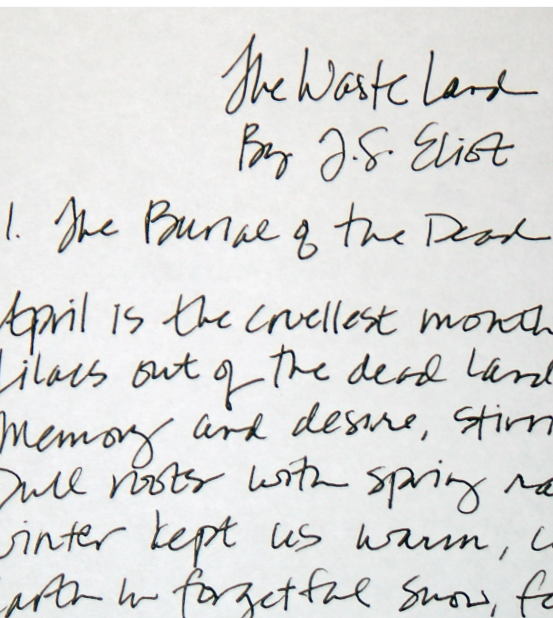 The Waste Land
By T.S. Eliot
1. The Burial of the Dead
April is the cruellest month
Lilacs out of the dead land
Memory and desire, stirri
Dull roots with spring ra
Winter kept us warm, c
Earth in forgetful snow, fe